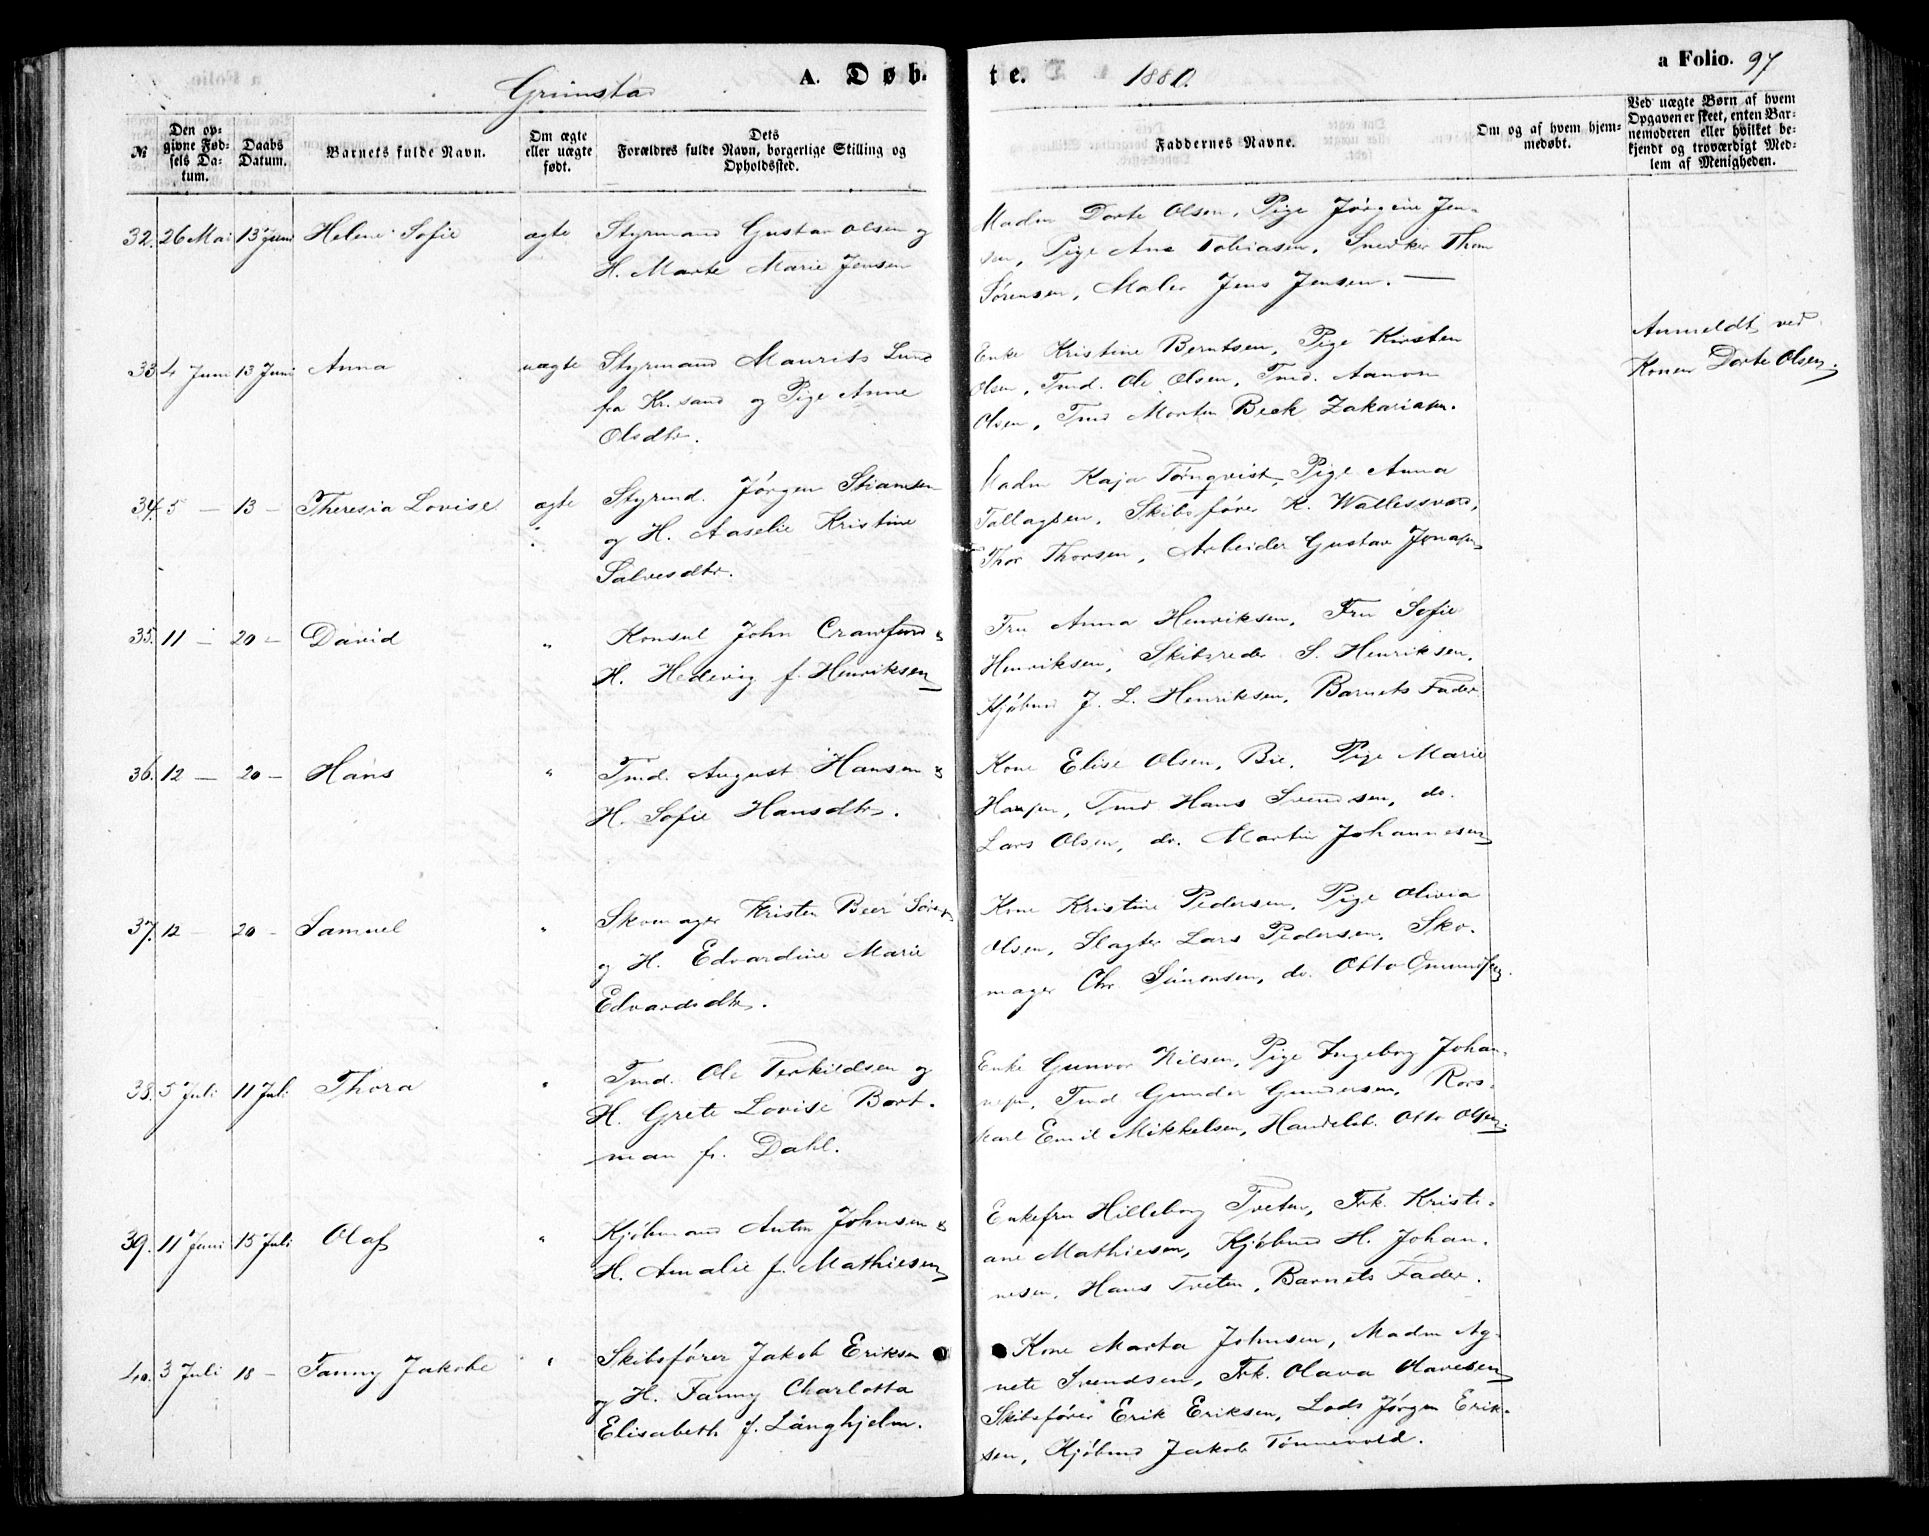 Grimstad
A. Døb-
te.
1880.
a Folio. 97
№
Den op-
givne Fød-
sels Da-
tum.
Daabs
Datum.
Barnets fulde Navn.
Om ægte
eller uægte
født.
Dets
Forældres fulde Navn, borgerlige Stilling og
Opholdssted.
Faddernes Navne.
Om og af hvem hjem-
medøbt.
Ved uægte Børn af hvem
Opgaven er skeet, enten Bar-
nemoderen eller hvilket be-
kjendt og troværdigt Med-
lem af Menigheden.
32. 26 Mai 13 Juni Helene Sofie ægte Styrmand Gustav Olsen og
H. Marte Marie Jensen
Madm Dorte Olsen, Pige Jørgine Jen-
sen, Pige Ane Tobiasen, Snedker Thom
Sørensen, Maler Jens Jensen. —
33. 4 Juni 13 Juni Anna uægte Styrmand Maurits Lund
fra Kr.sand og Pige Anne
Olsdtr.
Enke Kristine Berntsen, Pige Kirsten
Olsen, Tmd. Ole Olsen, Tmd. Aanon
Olsen, Tmd Morten Beck Zakariasen.
Anmeldt ved
Konen Dorte Olsen.
34. 5 — 13 — Theresia Lovise ægte Styrmd. Jørgen Stiansen
og H. Aaselie Kristine
Salvesdtr.
Madm Kaja Tørnqvist, Pige Anna
Tallagsen, Skibsfører K. Wallessværd,
Thor Thorsen, Arbeider Gustav Jonasen
35. 11 — 20 — David " Konsul John Crawfurd &
H. Hedevig f. Henriksen
Fru Anna Henriksen, Fru Sofie
Henriksen, Skibsreder S. Henriksen,
Kjøbmd J. L. Henriksen, Barnets Fader
36. 12 — 20 — Hans " Tmd. August Hansen &
H. Sofie Hansdtr.
Kone Elise Olsen, Bie, Pige Marie
Hansen, Tmd Hans Svendsen, do.
Lars Olsen, do. Martin Johannesen
37. 12 — 20 — Samuel " Skomager Kristen Beer Sørens
og H. Edvardine Marie
Edvardsdtr.
Kone Kristine Pedersen, Pige Olivia
Olsen, Slagter Lars Pedersen, Sko-
mager Chr. Simonsen, do. Otto Omundsen.
38. 5 Juli 11 Juli Thora " Tmd. Ole Terkildsen og
H. Grete Lovise Bort-
man f. Dahl.
Enke Gunvor Nilsen, Pige Ingeborg Johan-
nesen, Tmd Gunder Gundersen, Rors-
karl Emil Mikkelsen, Handelsb. Otto Olsen.
39. 11 Juni 15 Juli Olaf " Kjøbmand Anton Johnsen &
H. Amalie f. Mathiesen
Enkefru Hilleborg Treten, Frk. Kristi-
ane Mathiesen, Kjøbmd H. Johan-
nesen, Hans Treten, Barnets Fader.
40. 3 Juli 18 — Fanny Jakobe " Skibsfører Jakob Eriksen
og H. Fanny Charlotta
Elisabeth f. Långhjelm.
Kone Marta Johnsen, Madm Ag-
nete Svendsen, Frk. Olava Olavesen
Skibsfører Erik Eriksen, Lods Jørgen Erik-
sen, Kjøbmd Jakob Tønnevold.